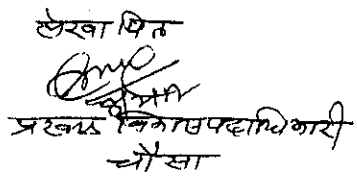 लेखापित
प्रखण्ड विकास पदाधिकारी
चौसा